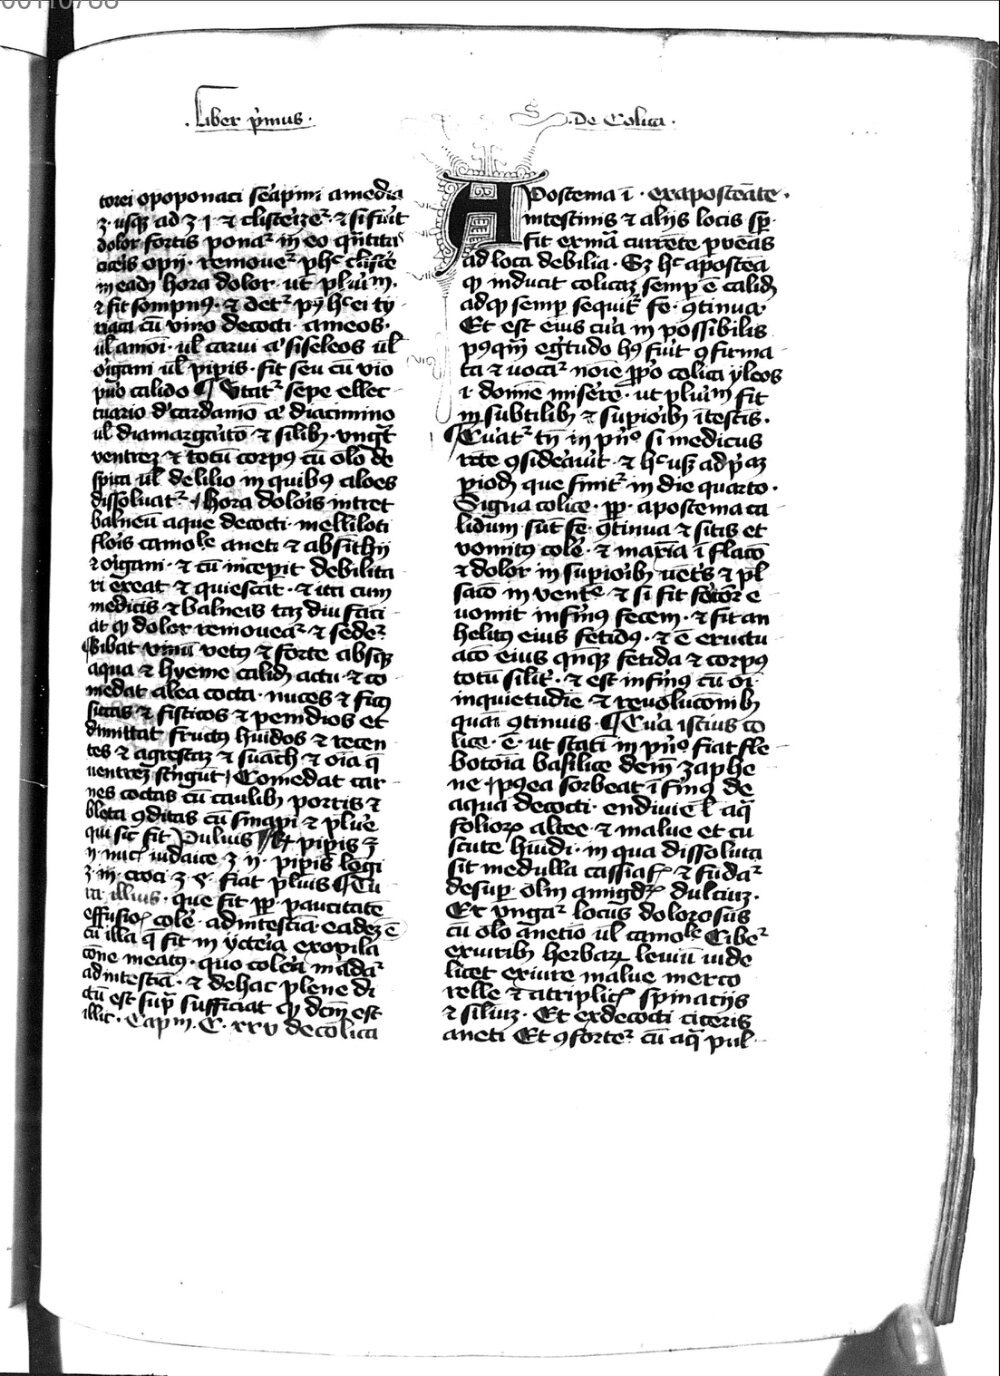 00110788
Liber p̄mus · S · De Colica ·
torei opoponaci serapini a media
ʒ · usqꝫ ad ʒ j · ⁊ clisteizetᷣ · ⁊ si fuit
dolor fortis ponatᷣ in eo q̄ntitas
opij · removetᷣ
in eadē hora dolor · ut plurim̄ ·
⁊ fit sompnꝰ · ⁊ detᷣ hc ei ty
riaca cū vino decocti · ameos ·
ul̄ amoī · ul̄ carui a' siseleos ul̄
origani ul̄ pipis · fit seu cū vīo
puo calido ¶ Utatᷣ sepe ellec
tuario d' cardamō a' diacimino
ul̄ diamargaritō ⁊ silibꝫ · ungat̄
ventreꝫ ⁊ totū corpꝰ cū olo de
spica ul̄ de lilio in quibꝰ aloes
dissoluatᷣ · hora doloris intret
balneū aque decocti · melliloti
floris camole aneti ⁊ absinthij
⁊ origani · ⁊ cū inceperit debilita
ri exeat ⁊ quiescat · ⁊ ita cum
medicis ⁊ balneis tā diu faci
at qꝫ dolor removeatᷣ ⁊ sedetᷣ
¶ Bibat vinū vetꝰ ⁊ forte absqꝫ
aqua ⁊ hyeme calidū actu · ⁊ co
medat alea cocta · nuces ⁊ ficꝰ
siccas ⁊ fisticos ⁊ penidios et
dimittat fructꝰ huidos ⁊ recen
tes ⁊ agrestaꝫ ⁊ sumach ⁊ oīa q̄
ventreꝫ st'ngūt Comedat car
nes coctas cū caulibꝫ porris ⁊
bleta ꝯditas cū sinapi ⁊ pluē
qui sic fit Pulvis pipis ʒ
ij · nuc̄ iudaice ʒ ij · pipis lōgi
ʒ iij · croci ʒ v · fiat pluīs ¶ Cu
ra illius · que fit ꝓp̄ paucitatē
effusiōꝫ colē · ad intestīa eadeꝫ ē
cū illa q̄ fit in ycteīa ex opila
cōne meatꝰ · quo colēā mādatᷣ
ad intestīā · ⁊ de hac plene di
ctū est sup̄ sufficiat qꝫ dcm̄ est
illic · Capm̄ · C · xxv de colica
APostema ī · ex aposteāte ·
intestinis ⁊ alijs locis sp̄
fit ex mā currēte pveīes
ad loca debilia · Sꝫ hc apostea
qꝫ inducit colicaꝫ semp̄ ē calidū
adqꝫ semp̄ sequitᷣ fe · ꝯtinua ·
Et est eius cura in possibilis
pꝰqm̄ egritudo hꝰ fuit ꝯfirma
ta ⁊ vocatᷣ noīe ꝓp̄o colica yleos
i · domine miserē · ut plurim̄ fit
in subtilibꝫ ⁊ supioribꝫ ītestīs ·
¶ Curatᷣ tn̄ in pn̄o si medicus
rite ꝯsideravit · ⁊ hc usqꝫ ad p̄maꝫ
piodū que finitᷣ in die quarto ·
Signa colice · ꝓp̄ · apostema ca
lidum sūt fe · ꝯtinua ⁊ sitis et
vomitꝰ colē · ⁊ maxīa īflacō
⁊ dolor in supioribꝫ ventis ⁊ pl
sacō in ventē · ⁊ si fit fortiōr e
vomit infirmꝰ fecem · ⁊ fit an
helitꝰ eius fetidꝰ · ⁊ ē eructu
acō eius qn̄qꝫ fetida ⁊ corpꝰ
totū silr̄ · ⁊ est infirmꝰ cū oī
inquietudīe ⁊ revolucōnibꝫ
quasi ꝯtinuis · ¶ Cura istius co
lice · ē · ut statī in pn̄o fiat fle
botoīa basilice deīn zaphe
ne pꝰea sorbeat īfirmꝰ de
aqua decocti · endivie l̄ aq̄
folioꝝ altee · ⁊ malve et cu
scute huidi · in qua dissoluta
sit medulla cassiafᷣ · ⁊ fūdatᷣ
desup · olm̄ amigdꝝ dulciuꝫ ·
Et ungatᷣ locus dolorosus
cū olo anetio ul̄ camole Cibetᷣ
ex iuribꝫ herbarꝝ leviū vide
licet ex iure malve merco
relle ⁊ atriplicꝭ spinacijs
⁊ siliuꝫ · Et ex decocti ciceris
aneti Et ꝯfortetᷣ cū aq̄ pul